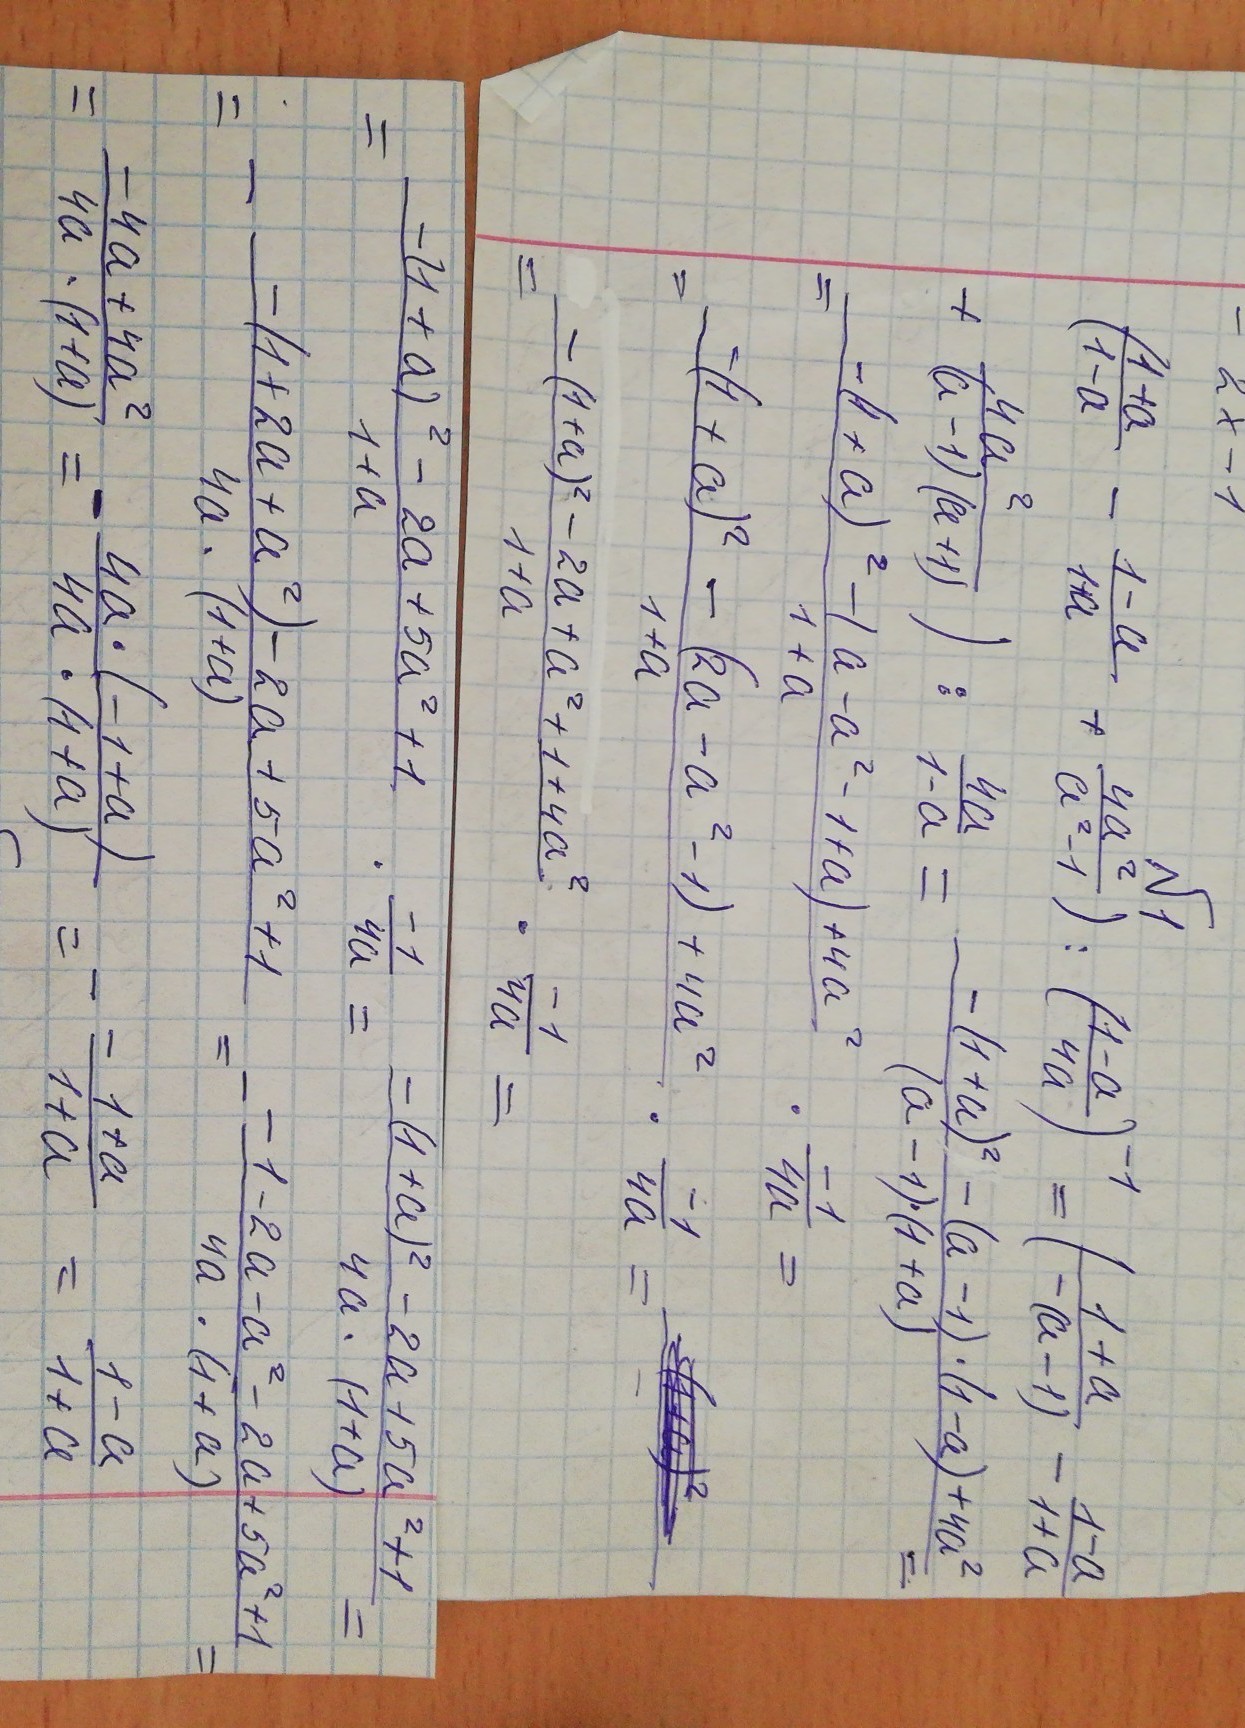 - 2x - 1
№1
((1+a)/(1-a) - (1-a)/(1+a) + 4a²/(a²-1)) : ((1-a)/4a)⁻¹ = ((1+a)/(-(a-1)) - (1-a)/(1+a)
+ 4a²/((a-1)(a+1))) : 4a/(1-a) = (-(1+a)² - (a-1)·(1-a)+4a²)/((a-1)·(1+a)) =
= (-(1+a)² - (a-a²-1+a)+4a²)/(1+a) · (-1)/4a =
= (-(1+a)² - (2a-a²-1)+4a²)/(1+a) · (-1)/4a =
= (-(1+a)² - 2a+a²+1+4a²)/(1+a) · (-1)/4a =
= (-(1+a)² - 2a+5a²+1)/(1+a) · (-1)/4a = (-(1+a)² - 2a+5a²+1)/(4a·(1+a)) =
= - (-(1+2a+a²)-2a+5a²+1)/(4a·(1+a)) = - (-1-2a-a²-2a+5a²+1)/(4a·(1+a)) =
= (-4a+4a²)/(4a·(1+a)) = - (4a·(-1+a))/(4a·(1+a)) = - (-1+a)/(1+a) = (1-a)/(1+a)